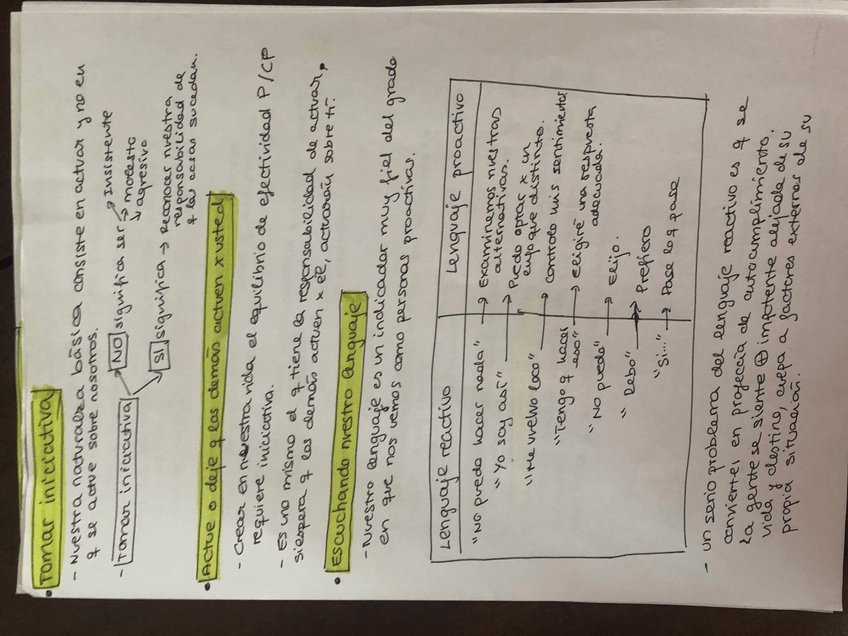 • Tomar iniciativa
- Nuestra naturaleza básica consiste en actuar y no en
q se actue sobre nosotros.
- Tomar iniciativa
NO significa ser → Insistente
→ molesto
→ agresivo
SI significa → Reconocer nuestra
responsabilidad de
q las cosas sucedan.
• Actue o deje q los demás actuen x usted
- Crear en nuestra vida el equilibrio de efectividad P/CP
requiere iniciativa.
- Es uno mismo el q tiene la responsabilidad de actuar,
si espera q los demás actuen x él, actuarán sobre ti.
• Escuchando nuestro lenguaje
- Nuestro lenguaje es un indicador muy fiel del grado
en que nos vemos como personas proactivas.
Lenguaje reactivo
Lenguaje proactivo
"No puedo hacer nada" → Examinemos nuestras
alternativas.
"Yo soy así" → Puedo optar x un
enfoque distinto.
"Me vuelve loco" → Controlo mis sentimientos
"Tengo q hacer
eso" → Eligiré una respuesta
adecuada.
"No puedo" → Elijo.
"Debo" → Prefiero
"Si..." → Pase lo q pase
- Un serio problema del lenguaje reactivo es q se
convierte en profecía de autocumplimiento.
La gente se siente ⊕ impotente alejada de su
vida y destino, culpa a factores externos de su
propia situación.